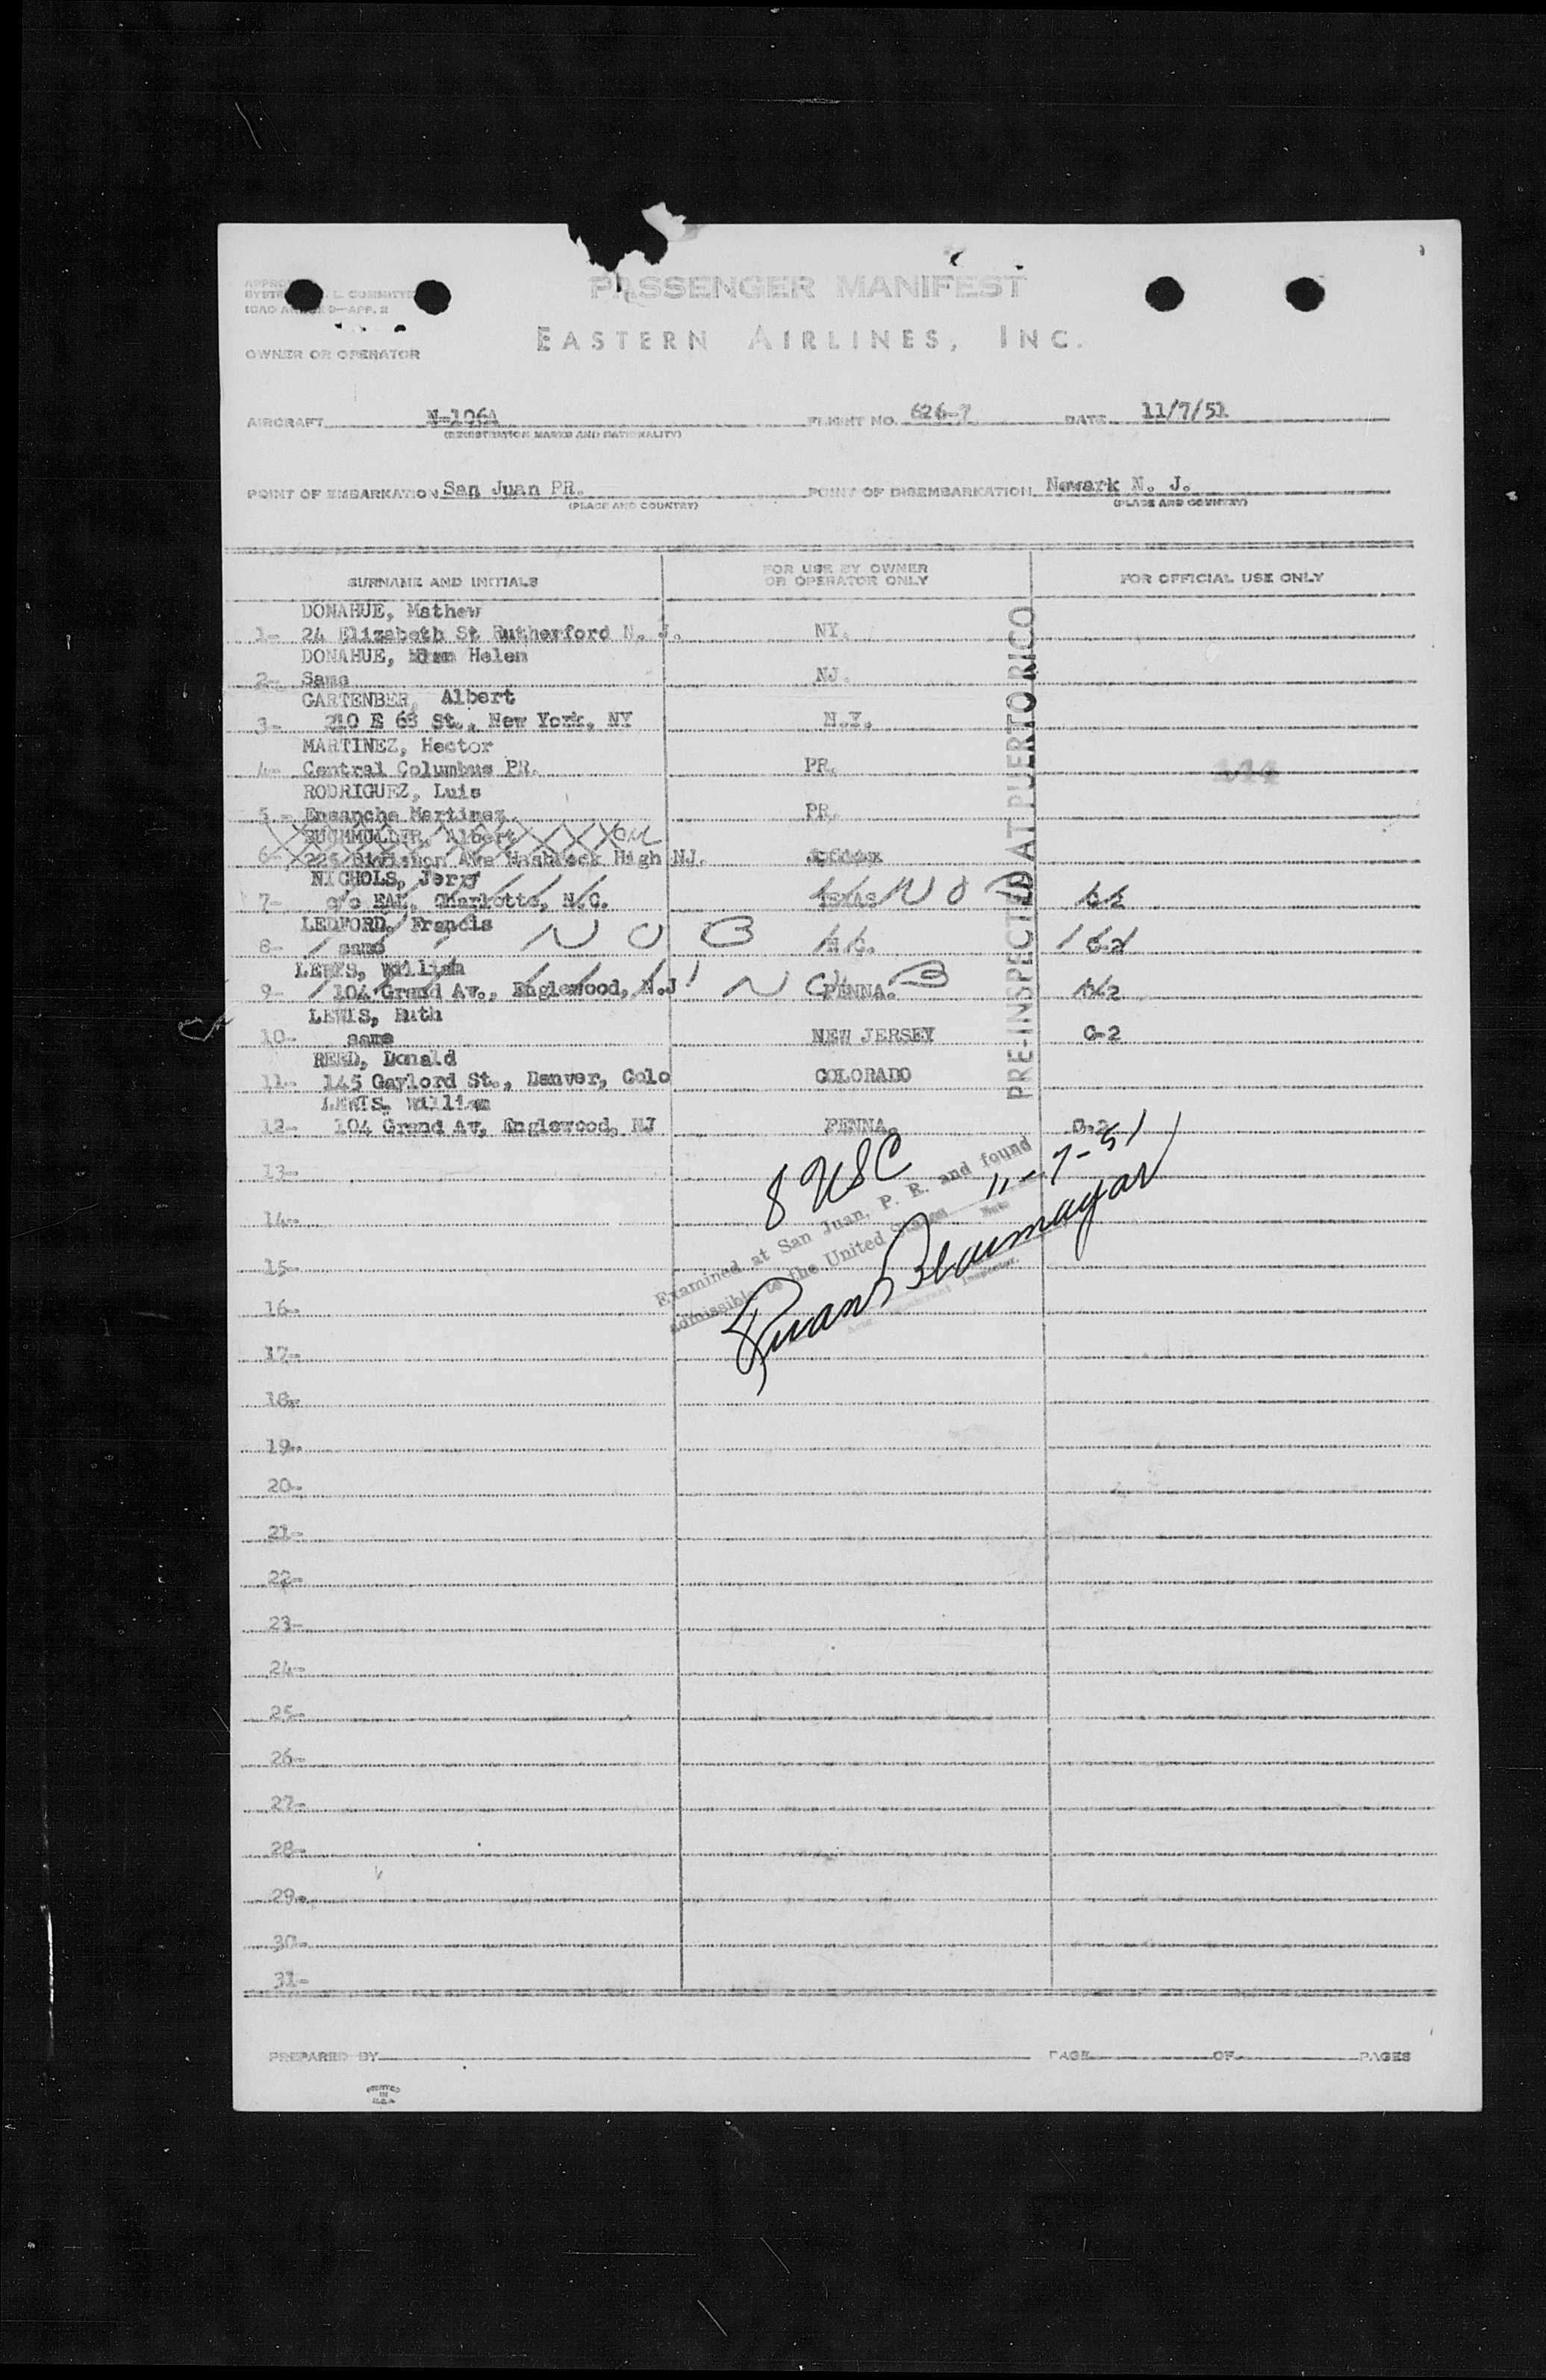 PASSENGER MANIFEST
EASTERN AIRLINES, INC.
OWNER OR OPERATOR
AIRCRAFT N-106A FLIGHT NO. 626-7 DATE 11/7/51
(REGISTRATION MARKS AND NATIONALITY)
POINT OF EMBARKATION San Juan PR. POINT OF DISEMBARKATION Newark N. J.
(PLACE AND COUNTRY) (PLACE AND COUNTRY)
SURNAME AND INITIALS FOR USE BY OWNER OR OPERATOR ONLY FOR OFFICIAL USE ONLY
DONAHUE, Mathew
1- 24 Elizabeth St Rutherford N. J. NY.
DONAHUE, Helen
2- Same NJ.
GARTENBER, Albert
3- 210 E 68 St., New York, NY N.Y.
MARTINEZ, Hector
4- Central Columbus PR. PR.
RODRIGUEZ, Luis
5- Ensanche Martinez PR.
Albert
6- 225 Division Ave High NJ.
NICHOLS, Jerry
7- c/o EAL, Charlotte, N.C. TEXAS N O B C-2
LEDFORD, Francis
8- same N O B N.C. C-2
LEWIS, William
9- 104 Grand Av., Englewood, N.J N O B PENNA. C-2
LEWIS, Ruth
10- same NEW JERSEY C-2
REED, Donald
11- 145 Gaylord St., Denver, Colo COLORADO
LEWIS, William
12- 104 Grand Av, Englewood, NJ PENNA. C-2
PRE-INSPECTED AT PUERTO RICO
13-
8 USC
14-
Examined at San Juan, P. R. and found
admissible to the United States 11-7-51
Date
Inspector.
15-
16-
17-
18-
19-
20-
21-
22-
23-
24-
25-
26-
27-
28-
29-
30-
31-
PREPARED BY PAGE OF PAGES
PRINTED
IN
U.S.A.